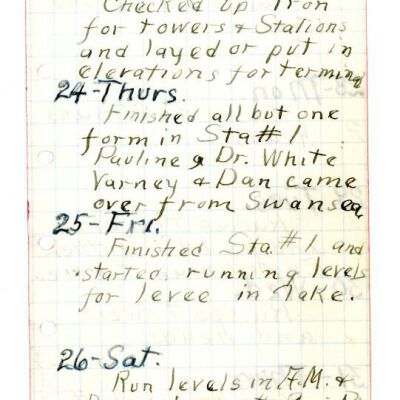 Checked up Iron
for towers & Stations
and layed or put in
elevations for terminal
24-Thurs.
Finished all but one
form in Sta #1
Pauline & Dr. White
Varney & Dan came
over from Swansea
25-Fri.
Finished Sta. #1 and
started running levels
for levee in lake.
26-Sat.
Run levels in A.M. &